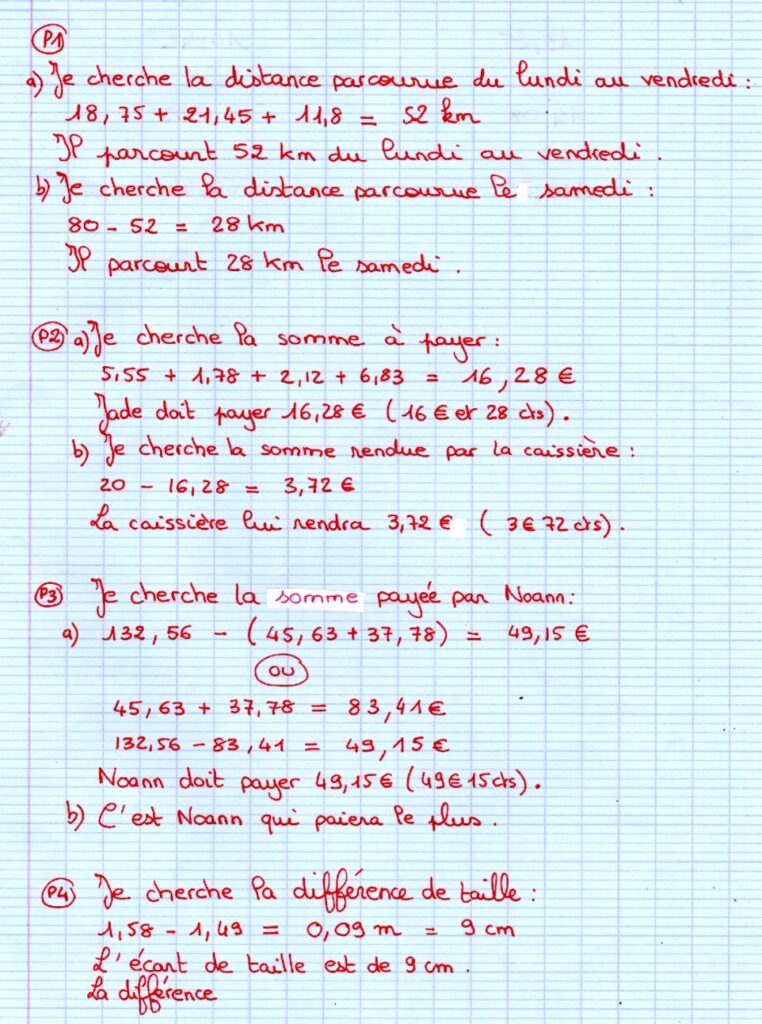 P1
a) Je cherche la distance parcourue du lundi au vendredi :
18,75 + 21,45 + 11,8 = 52 km
Il parcourt 52 km du lundi au vendredi.
b) Je cherche la distance parcourue le samedi :
80 - 52 = 28 km
Il parcourt 28 km le samedi.
P2 a) Je cherche la somme à payer :
5,55 + 1,78 + 2,12 + 6,83 = 16,28 €
Jade doit payer 16,28 € (16 € et 28 cts).
b) Je cherche la somme rendue par la caissière :
20 - 16,28 = 3,72 €
La caissière lui rendra 3,72 € (3€ 72 cts).
P3 Je cherche la somme payée par Noann :
a) 132,56 - (45,63 + 37,78) = 49,15 €
OU
45,63 + 37,78 = 83,41 €
132,56 - 83,41 = 49,15 €
Noann doit payer 49,15 € (49€ 15 cts).
b) C'est Noann qui paiera le plus.
P4 Je cherche la différence de taille :
1,58 - 1,49 = 0,09 m = 9 cm
L'écart de taille est de 9 cm.
La différence